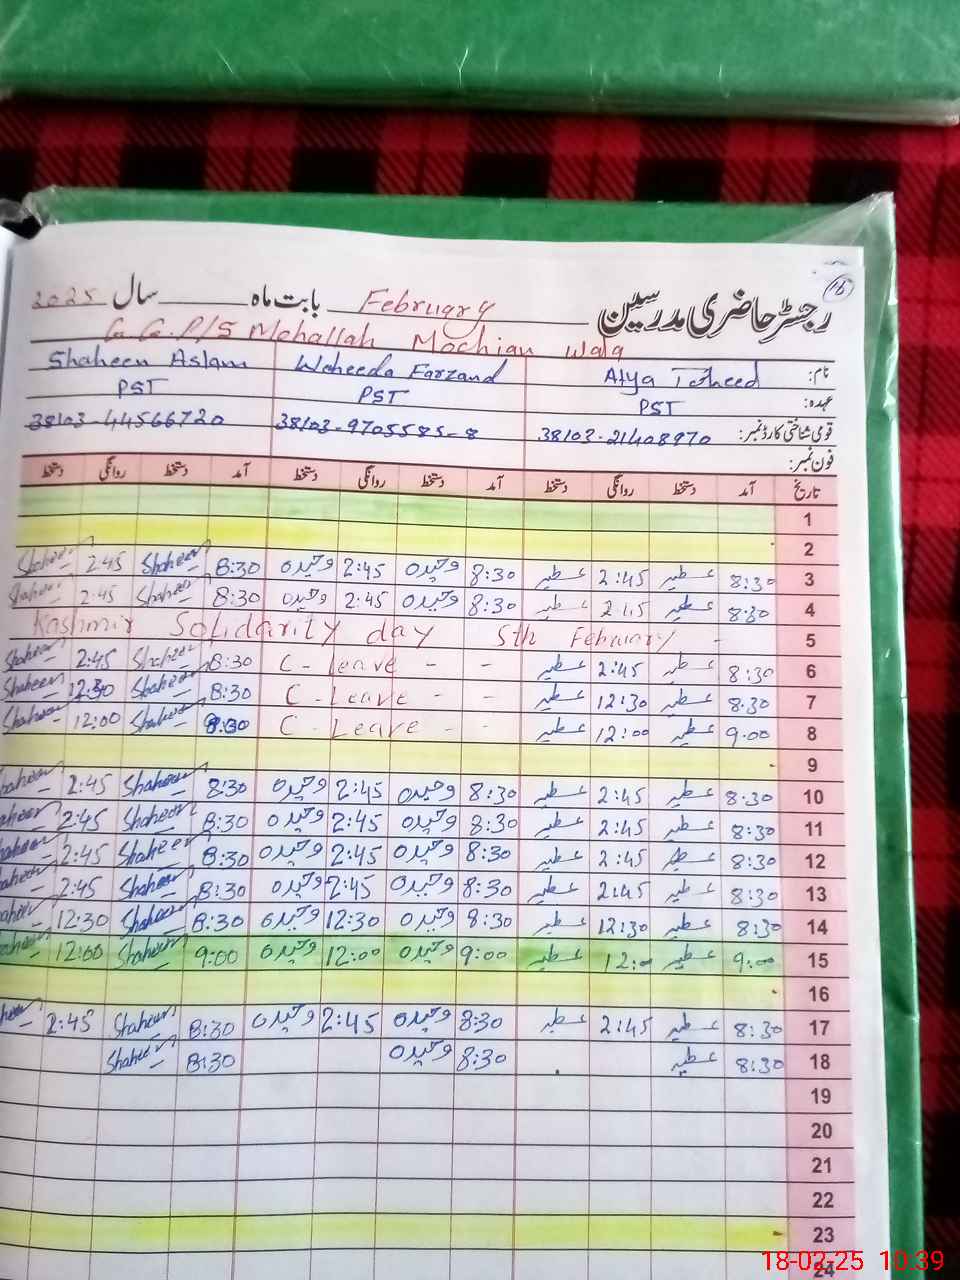 16
رجسٹر حاضری مدرسین بابت ماہ February سال 2025
G.G.P/S Mohallah Mochian Wala
نام: Atya Toheed Waheeda Farzand Shaheen Aslam
عہدہ: PST PST PST
قومی شناختی کارڈ نمبر: 38103-21408970 38103-9705585-8 38103-44566720
فون نمبر:
تاریخ آمد دستخط روانگی دستخط آمد دستخط روانگی دستخط آمد دستخط روانگی دستخط
1
2
3 8:30 عطیہ 2:45 عطیہ 8:30 وحیدہ 2:45 وحیدہ 8:30 Shaheen 2:45 Shaheen
4 8:30 عطیہ 2:45 عطیہ 8:30 وحیدہ 2:45 وحیدہ 8:30 Shaheen 2:45 Shaheen
5 Kashmir Solidarity day 5th February -
6 8:30 عطیہ 2:45 عطیہ C - Leave - - 8:30 Shaheen 2:45 Shaheen
7 8:30 عطیہ 12:30 عطیہ C - Leave - - 8:30 Shaheen 12:30 Shaheen
8 9:00 عطیہ 12:00 عطیہ C - Leave - - Shaheen 12:00 Shaheen
9
10 8:30 عطیہ 2:45 عطیہ 8:30 وحیدہ 2:45 وحیدہ 8:30 Shaheen 2:45 Shaheen
11 8:30 عطیہ 2:45 عطیہ 8:30 وحیدہ 2:45 وحیدہ 8:30 Shaheen 2:45 aheen
12 8:30 عطیہ 2:45 عطیہ 8:30 وحیدہ 2:45 وحیدہ 8:30 Shaheen 2:45 aheen
13 8:30 عطیہ 2:45 عطیہ 8:30 وحیدہ 2:45 وحیدہ 8:30 Shaheen 2:45 aheen
14 8:30 عطیہ 12:30 عطیہ 8:30 وحیدہ 12:30 وحیدہ 8:30 Shaheen 12:30 aheen
15 9:00 عطیہ 12:00 عطیہ 9:00 وحیدہ 12:00 وحیدہ 9:00 Shaheen 12:00 aheen
16
17 8:30 عطیہ 2:45 عطیہ 8:30 وحیدہ 2:45 وحیدہ 8:30 Shaheen 2:45 heen
18 8:30 عطیہ 8:30 وحیدہ 8:30 Shaheen
19
20
21
22
23
24
18-02-25 10:39